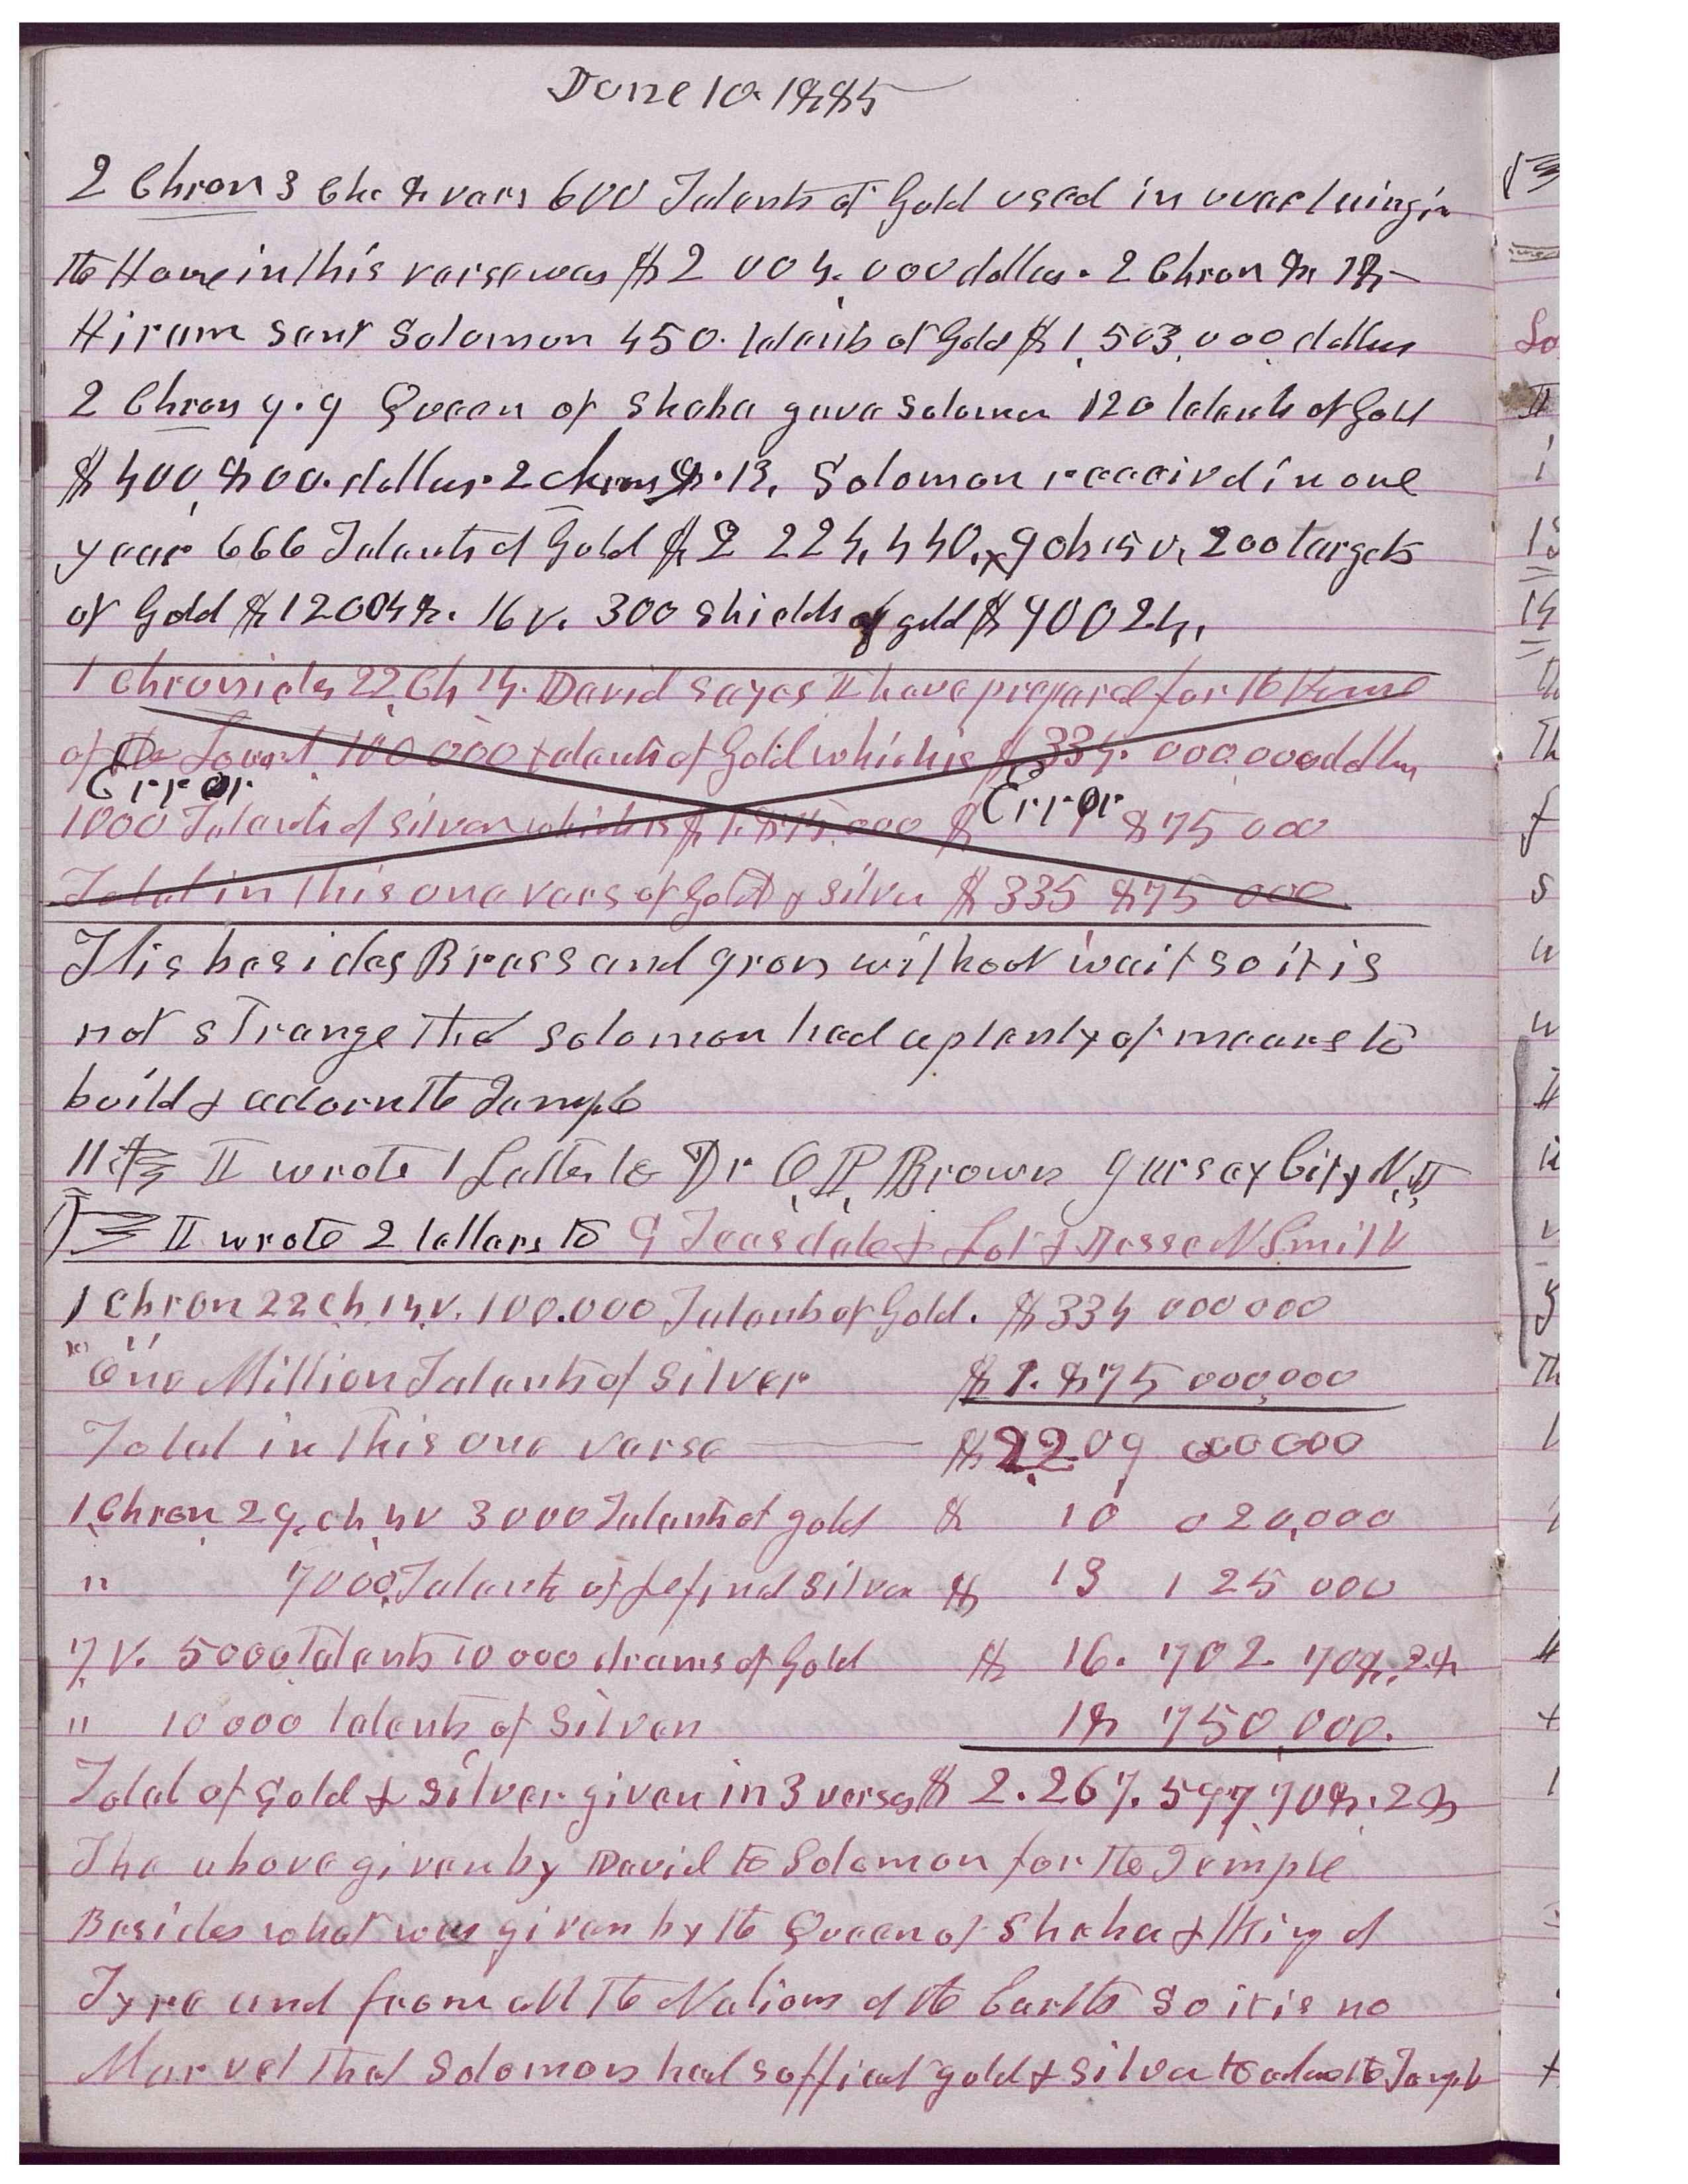 June 10. 1885
2 Chron 3 Ch. 8 vers 600 Talents of Gold used in overlaying in
the House in this verse was $2 004,000 dollars. 2 Chron 8. 18
Hiram sent Solomon 450. talents of Gold $1,503,000 dollars
2 Chron 9.9 Queen of Sheba gave Solomon 120 talents of Gold
$400,800. dollars. 2 Chron 9.13, Solomon receeivd in one
year 666 Talents of Gold $2 224,440. x 9 ch 15 v, 200 targets
of Gold $12004 8. 16 v. 300 shields of gold $90024,
1 Chronicles 22, Ch 14. David sayes I have prepared for the House
of the Lord 100 000 talents of Gold which is $334. 000.000 dollars
Error Error
1000 Talents of Silver which is $1.875.000 $ 1 875 000
Total in this one vers of Gold & Silver $335 875 000
This besides Brass and Iron without wait so it is
not strange that Solomon had a plenty of means to
build & adorn the Temple
11 I wrote 1 Letter to Dr O, P, Brown Jersey City N, J
I wrote 2 lettars to G Teasdale & Lot & Jesse N Smith
1 Chron 22 ch 14 v. 100.000 Talents of Gold. $334 000 000
" " One Million Talents of Silver $1.875 000,000
Total in this one verse $2209 000000
1 Chron 29, ch, 4 v 3000 Talents of gold $ 10 020,000
" 7000, Talents of Refind Silver $ 13 125 000
7, V. 5000 Talents 10 000 drams of Gold $ 16. 702. 708,28
" 10 000 talents of Silver 18 750,000.
Total of Gold & Silver given in 3 verses $ 2.267.597 708.28
The above given by David to Solomon for the Temple
Besides what was given by the Queen of Sheba & King of
Tyre and from all the Nations of the Earth So it is no
Marvel that Solomon had sufficient gold & silver to adorn the Temple